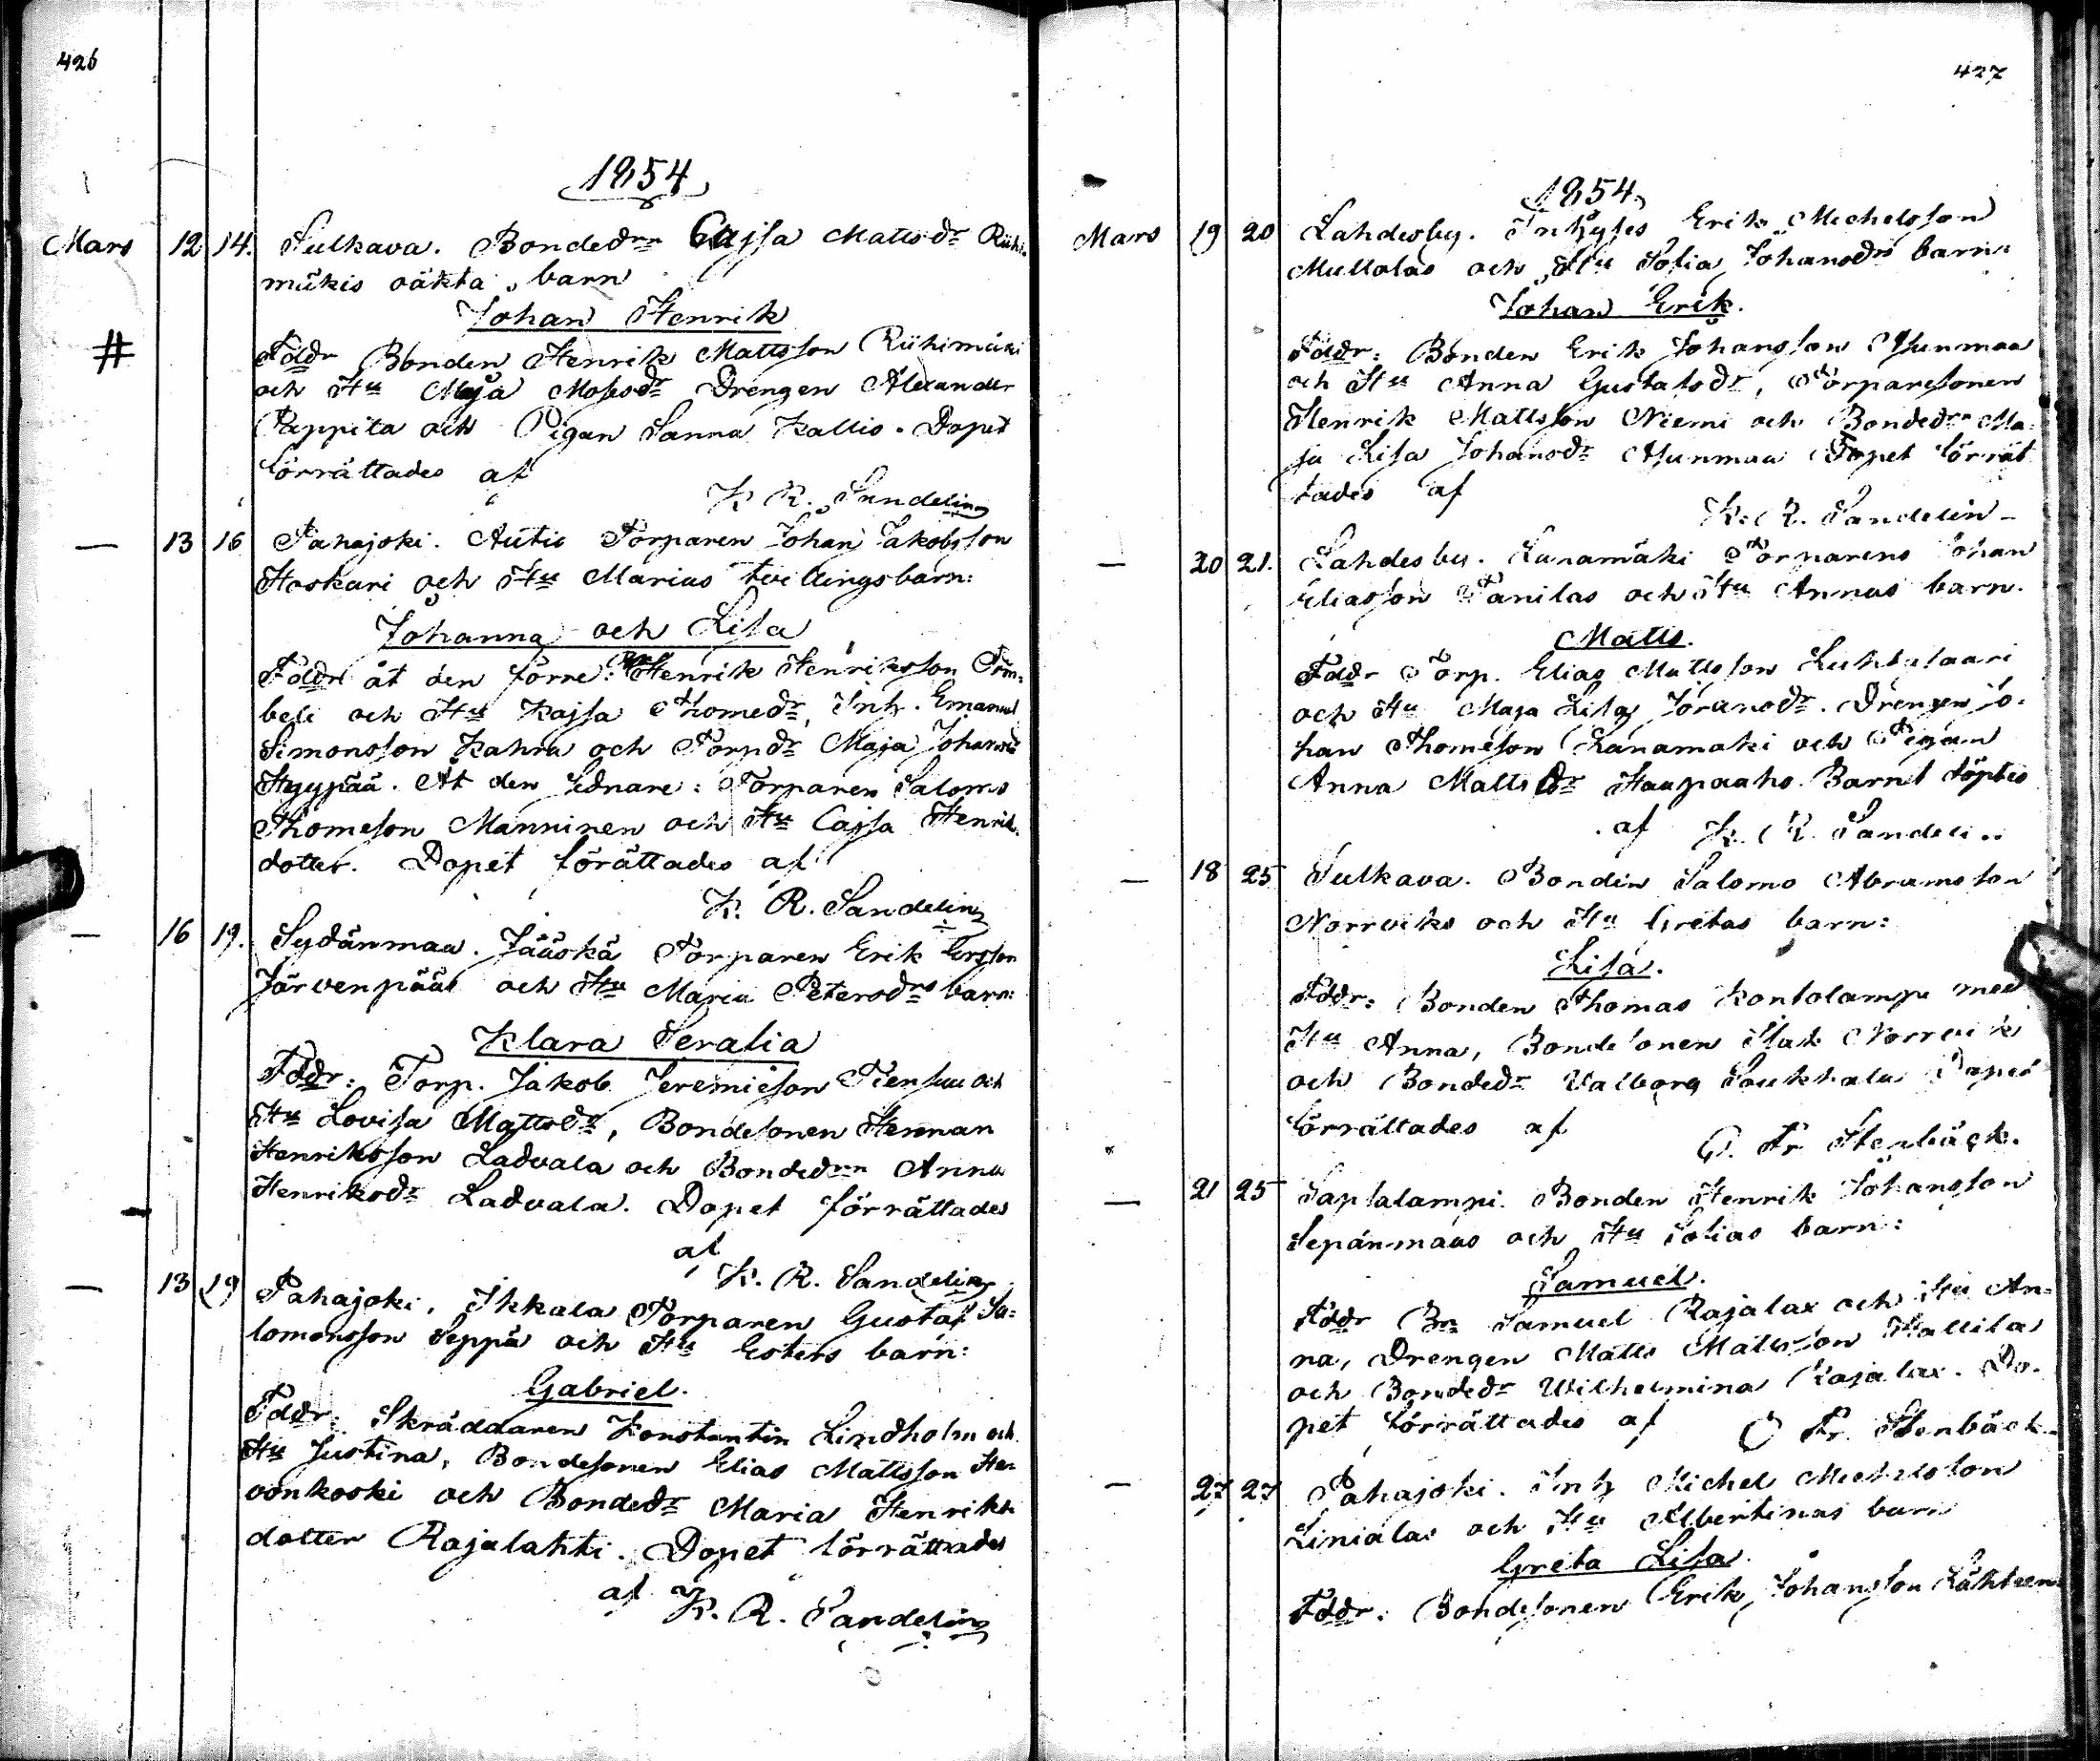 426
1854
Mars 12 14. Sulkava. Bondedrn Cajsa Mattsdr Riihi-
mäkis oäkta barn
Johan Henrik
# Fddr Bonden Henrik Mattsson Riihimäki
och Hu Maja Mosesdr Drengen Alexander
Pappila och Pigan Sanna Kallio. Dopet
förrättades af
K. R. Sandelin
— 13 16 Pahajoki. Autio Torparen Johan Jakobsson
Koskari och Hu Marias tvillingsbarn:
Johanna och Lisa
Fddr åt den förre: Henrik Henriksson
beli och Hu Kajsa Thomedr, Inh. Emanuel
Simonsson Kahra och Torpdr Maja Johansdr
Hyypää. Åt den sednare: Torparen Salomo
Thomeson Manninen och Hu Cajsa Henriks
dotter. Dopet förättades af
K. R. Sandelin
— 16 19. Sydänmaa. Jääskä Torparen Erik Ersson
Järvenpääs och Hu Maria Petersdrs barn:
Klara Serafia
Fddr: Torp. Jakob Jeremieson Piensuu och
Hu Lovisa Mattsdr, Bondesonen Herman
Henriksson Ladvala och Bondedrn Anna
Henriksdr Ladvala. Dopet förrättades
af
K. R. Sandelin
— 13 19 Pahajoki, Ikkala Torparen Gustaf Sa-
lomonsson Seppä och Hu Esters barn:
Gabriel.
Fddr: Skräddaren Konstantin Lindholm och
Hu Justina, Bondesonen Elias Mattsson Her-
vonkoski och Bondedr Maria Henriks
dotter Rajalahti. Dopet förrättades
af K. R. Sandelin
427
1854
Mars 19 20 Lahdesby. Inhyses Erik Michelsson
Mullolas och Hu Sofia Johansdrs barn:
Johan Erik.
Fddr: Bonden Erik Johansson Asunmaa
och Hu Anna Gustafsdr, Torparesonen
Henrik Mattsson Niemi och Bondedrn Ma-
ja Lisa Johansdr Asunmaa Dopet förrät
tades af
K. R. Sandelin
— 20 21. Lahdesby. Lanamäki Torparens Johan
Eliasson Panilas och Hu Annas barn.
Matts.
Fddr Torp. Elias Mattsson Luhtasaari
och Hu Maja Lisa Göransdr. Drengen Jo-
han Thomeson Lanamäki och Pigan
Anna Mattsdr Haapaaho. Barnet döptes
af K. R. Sandelin
— 18 25 Sulkava. Bonden Salomo Abramsson
Norrviks och Hu Gretas barn:
Lisa.
Fddr: Bonden Thomas Kontolampi med
Hu Anna, Bondesonen Isak Norrvik
och Bondedr Valborg Soukkala Dopet
förrättades af
O. Fr. Stenbäck.
— 21 25 Saptalampi. Bonden Henrik Johansson
Sepänmaas och Hu Sofias barn:
Samuel.
Fddr Bn Samuel Rajalax och Hu An-
na, Drengen Matts Mattsson Hallila
och Bondedr Wilhelmina Rajalax. Do-
pet förrättades af O Fr. Stenbäck
— 27 27 Pahajoki. Inh Michel Michelsson
Linialas och Hu Albertinas barn
Greta Lisa
Fddr: Bondesonen Erik Johansson